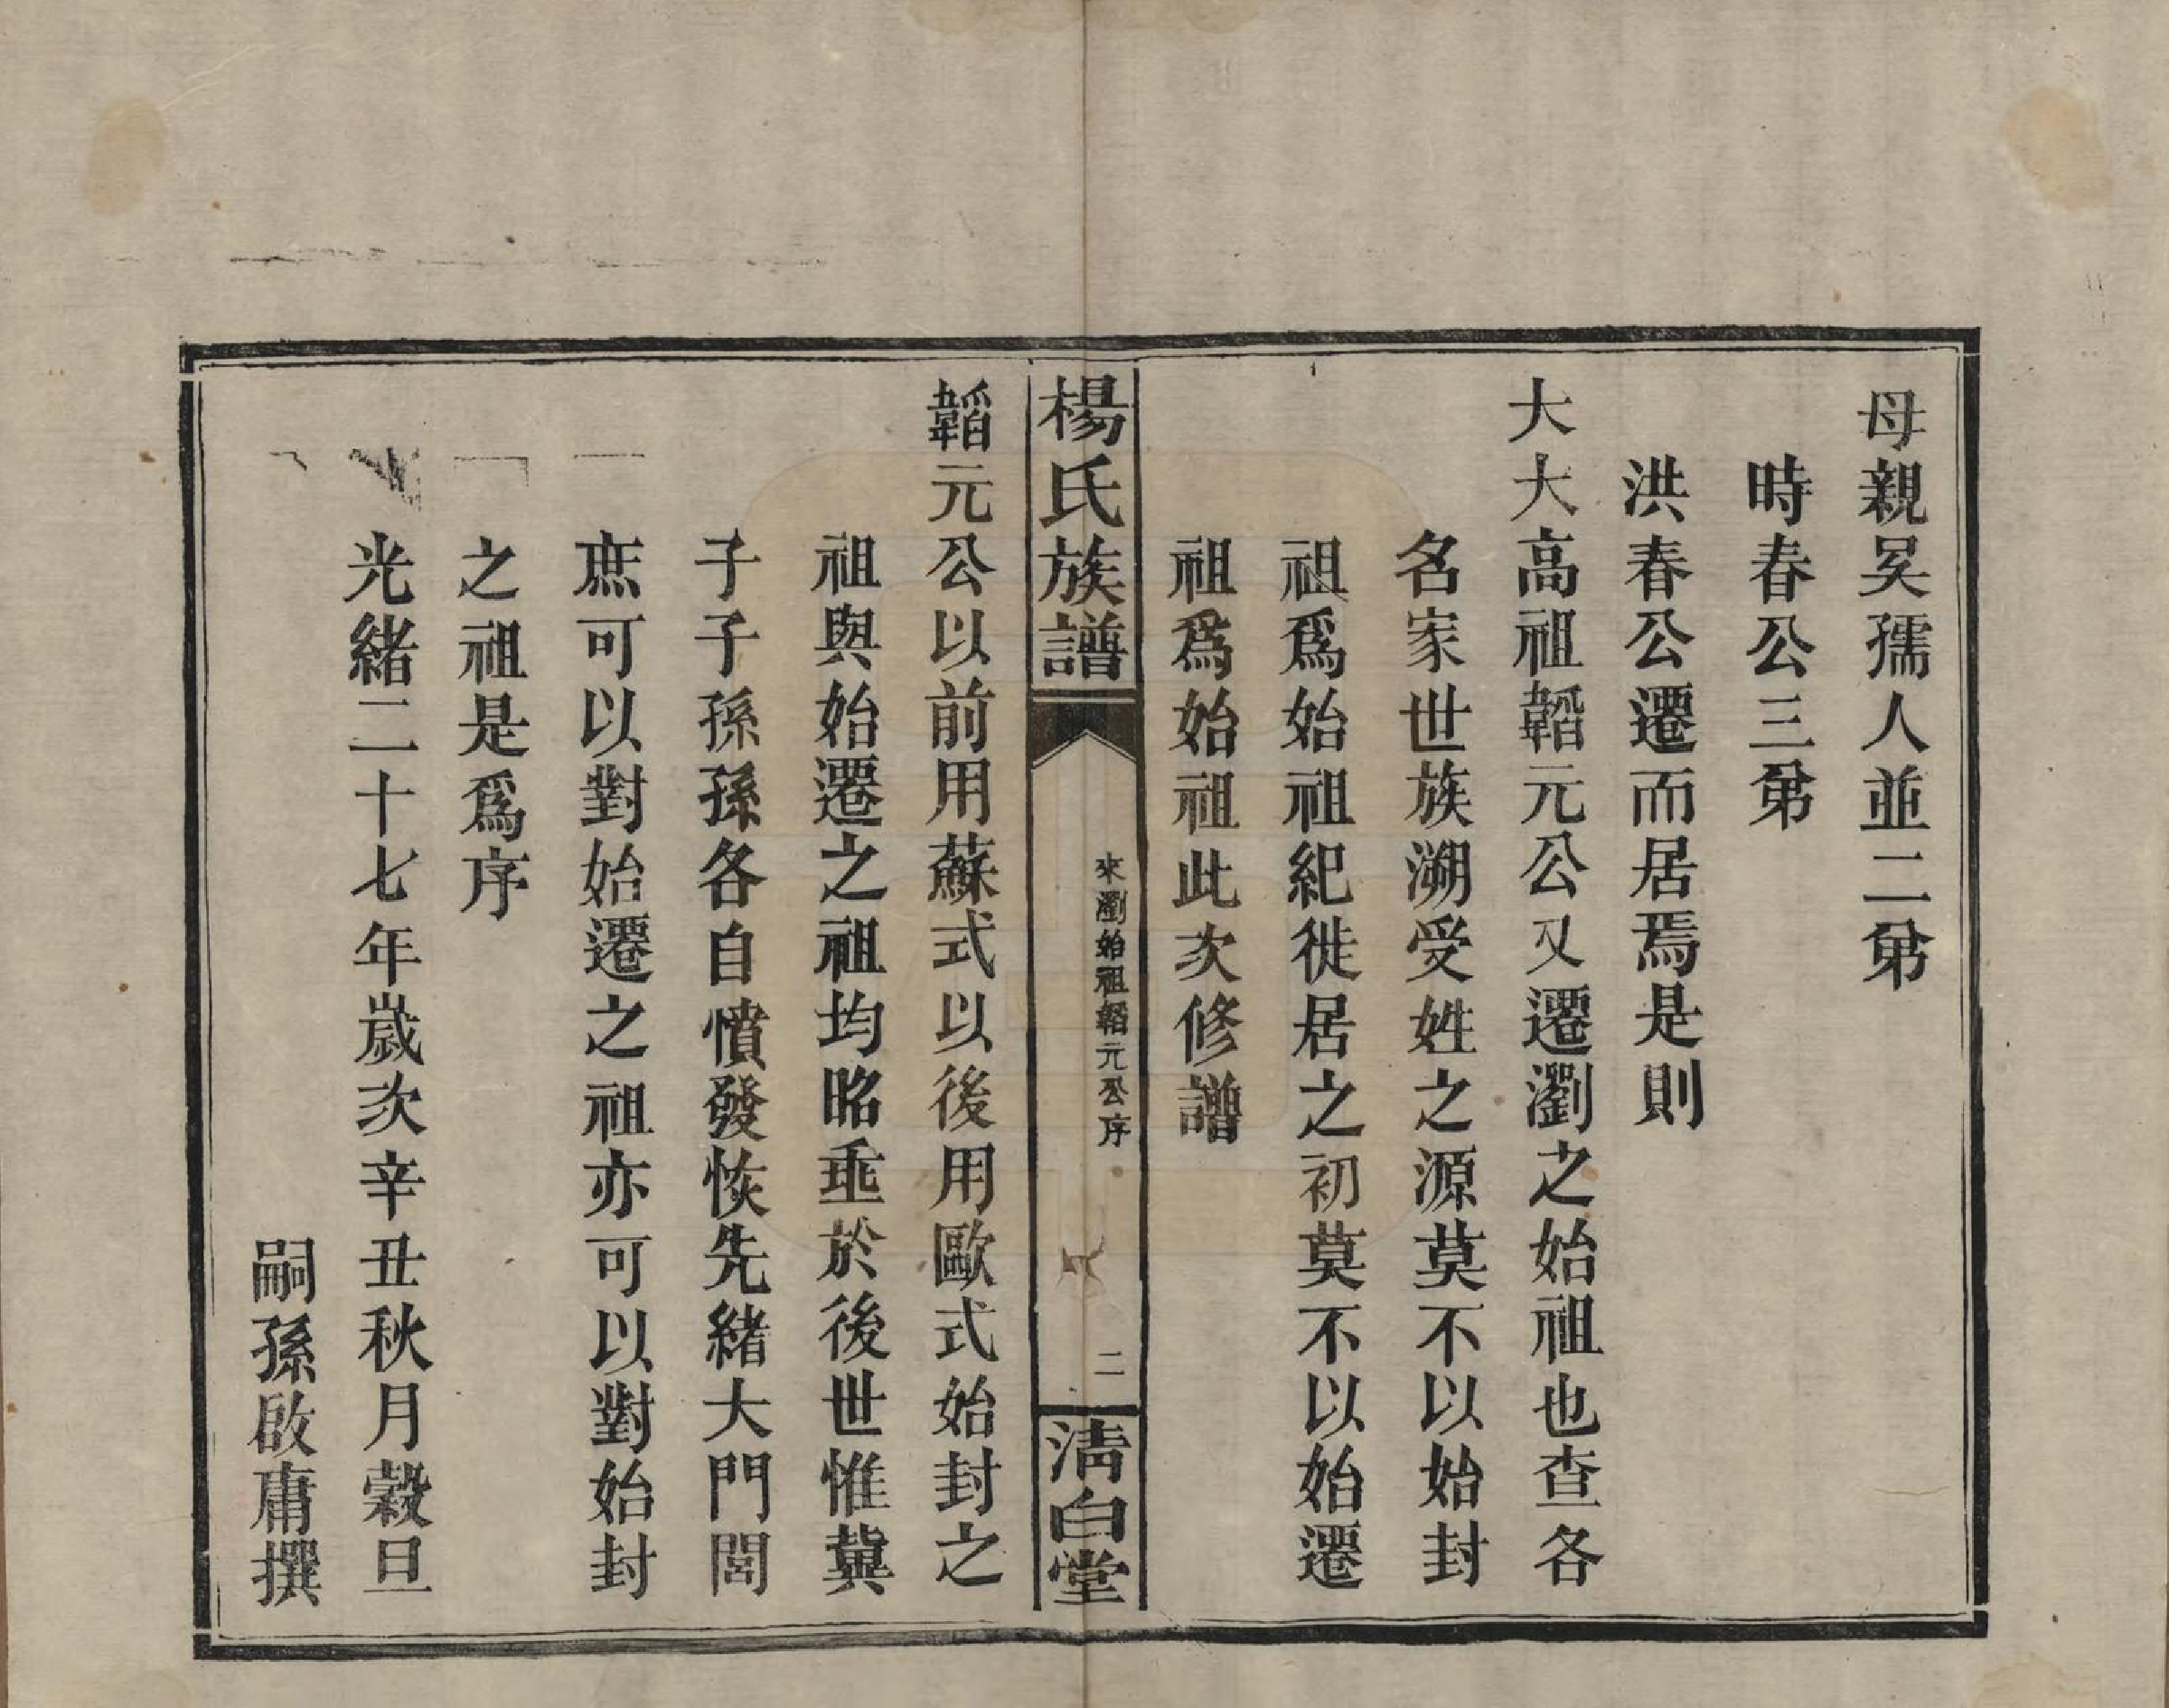 母親吳孺人並二弟
時春公三弟
洪春公遷而居焉是則
大大高祖韜元公又遷瀏之始祖也查各
名家世族溯受姓之源莫不以始封
祖爲始祖紀徙居之初莫不以始遷
祖爲始祖此次修譜
楊氏族譜
來瀏始祖韜元公序
二
清白堂
韜元公以前用蘇式以後用歐式始封之
祖與始遷之祖均昭垂於後世惟冀
子子孫孫各自憤發恢先緒大門閭
庶可以對始遷之祖亦可以對始封
之祖是爲序
光緒二十七年歲次辛丑秋月穀旦
嗣孫啟庸撰